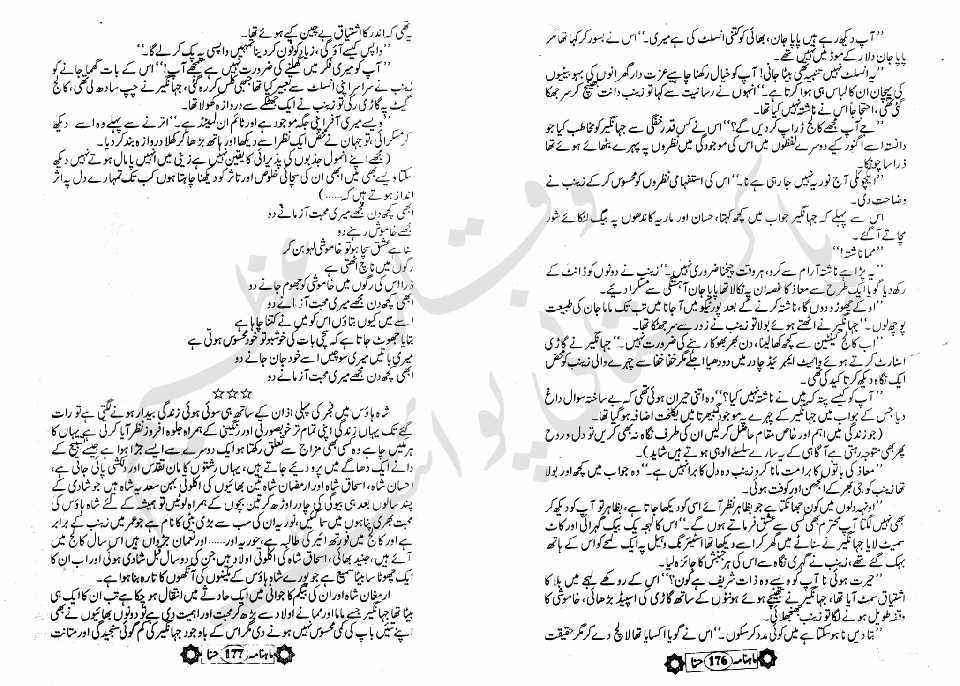 ’’آپ دیکھ رہے ہیں پاپا جان، بھائی کو کتنی انسلٹ کی ہے میری۔‘‘ اس نے بسور کر کہا تھا مگر
پاپا جان دلار کے موڈ میں نہیں تھے۔
’’یہ انسلٹ نہیں تنبیہ تھی بیٹا جانی! آپ کو خیال رکھنا چاہیے عزت دار گھرانوں کی بہو بیٹیوں
کی پہچان ان کا لباس ہی ہوا کرتا ہے۔‘‘ انہوں نے رسانیت سے کہا تو زینب دانت بھینچ کر سر جھکا
گئی تھی، احتجاجاً اس نے ناشتہ نہیں کیا تھا۔
’’جے آپ مجھے کالج ڈراپ کر دیں گے؟‘‘ اس نے کس قدر خفگی سے جہانگیر کو مخاطب کیا جو
دانستہ اسے اگنور کیے دوسرے لفظوں میں اس کی موجودگی میں نظروں پہ پہرے بٹھائے ہوئے تھا
ذرا سا چونکا۔
’’ایچوئلی آج نور یہ نہیں جا رہی ہے نا۔‘‘ اس کی استفہامی نظروں کو محسوس کر کے زینب نے
وضاحت دی۔
اس سے پہلے کہ جہانگیر جواب میں کچھ کہتا، حسان اور ماریہ کاندھوں پہ بیگ لٹکائے شور
مچاتے آ گئے۔
’’مما ناشتہ!‘‘
’’یہ پڑا ہے ناشتہ آرام سے کرو، ہر وقت چیخنا ضروری نہیں۔‘‘ زینب نے دونوں کو ڈانٹ کے
رکھ دیا گویا ایک طرح سے معاذ کا غصہ ان پہ نکالا تھا پاپا جان آہستگی سے مسکرا دیے۔
’’اوکے چھوڑ دوں گا، ناشتہ کرنے کے بعد پورٹیکو میں آ جانا میں تب تک ماما جان کی طبیعت
پوچھ لوں۔‘‘ جہانگیر نے اٹھتے ہوئے بولا تو زینب نے زور سے سر جھٹکا تھا۔
’’اب کالج کینٹین سے کچھ کھا لینا، دن بھر بھوکا رہنے کی ضرورت نہیں۔‘‘ جہانگیر نے گاڑی
اسٹارٹ کرتے ہوئے وائیٹ ایمبرئیڈ چادر میں دودھیا اجلے مگر خفا خفا سے چہرے والی زینب کو محض
ایک نگاہ دیکھ کر تاکید کی تھی۔
’’آپ کو کیسے پتہ کہ میں نے ناشتہ نہیں کیا؟‘‘ وہ اتنی حیران ہوئی تھی کہ بے ساختہ سوال داغ
دیا جس کے جواب میں جہانگیر کے چہرے پہ موجود گمبھیرتا میں یکلخت اضافہ ہو گیا تھا۔
(جو زندگی میں اہم اور خاص مقام حاصل کر لیں ان کی طرف نگاہ نہ بھی کریں تو دل و روح
پھر بھی متوجہ رہتی ہے آگاہی کے یہ سارے سلسلے الوہی ہوتے ہیں شاید)۔
’’معاذ کی باتوں کا برا مت مانا کرو زینب وہ دل کا برا نہیں ہے۔‘‘ وہ جواب میں کچھ اور بولا
تھا زینب کو جی بھر کے الجھن اور کوفت ہوئی۔
’’اونہہ دلوں میں کون جھانکتا ہے جو بظاہر نظر آئے اسی کو دیکھا جاتا ہے، بظاہر تو آپ کو دیکھ کر
بھی نہیں لگتا آپ محترم بھی کسی سے عشق فرماتے ہوں گے۔‘‘ اس کا لہجہ یک بیک گہرائی اور کاٹ
سمیٹ لایا جہانگیر نے سناٹے میں گھر کر اسے دیکھا تھا اسٹیئرنگ وہیل پہ ایک لمحے کو اس کے ہاتھ
بہک گئے تھے، زینب نے گہری نگاہ سے اس کی ہر جنبش کا جائزہ لیا۔
’’حیرت ہوئی نا آپ کو ویسے وہ ذات شریف ہے کون؟‘‘ اس کے روکھے لہجے میں بلا کا
اشتیاق سمٹ آیا تھا، جہانگیر نے بھینچے ہوئے ہونٹوں کے ساتھ گاڑی کی اسپیڈ بڑھائی، خاموشی کا
وقفہ طویل ہونے لگا تو زینب جھنجھلائی۔
’’بتا دیں نا ہو سکتا ہے میں کوئی مدد کر سکوں۔‘‘ اس نے گویا اکسایا تھا لالچ دے کر مگر حقیقت
ماہنامہ 176 حنا
یہی تھی کہ اندر کا اشتیاق بے چین کیے ہوئے تھا۔
’’واپس کیسے آؤ گی، زیاد کو فون کر دینا تمہیں واپسی پہ پک کر لے گا۔‘‘
’’آپ کو میری فکر میں گھلنے کی ضرورت نہیں ہے سمجھے آپ!‘‘ اس کے بات گھما جانے کو
زینب نے سراسر اپنی انسلٹ سے تعبیر کیا تھا جبھی ٹلس کر رہ گئی، جہانگیر نے چپ سادھ لی تھی، کالج
گیٹ پہ گاڑی رکی تو زینب نے ایک جھٹکے سے دروازہ کھولا تھا۔
’’ویسے میری آفر اپنی جگہ موجود ہے اور ٹائم ان لمیٹڈ ہے۔‘‘ اترنے سے پہلے وہ اسے دیکھ
کر مسکرائی تو جہان نے محض ایک نظر اسے دیکھا اور ہاتھ بڑھا کر کھلا دروازہ بند کر دیا۔
(مجھے اپنے انمول جذبوں کی پذیرائی کا یقین نہیں ہے زینی میں انہیں پامال ہوتے نہیں دیکھ
سکتا ویسے بھی میں ابھی ان کی سچائی خلوص اور تاثر کو دیکھنا چاہتا ہوں کب تک تمہارے دل پہ اثر
انداز ہوتے ہیں کہ......)
ابھی کچھ دن مجھے میری محبت آزمانے دو
مجھے خاموش رہنے دو
سنا ہے عشق سچا ہو تو خاموشی لہو بن کر
رگوں میں ناچ اٹھتی ہے
ذرا اس کی رگوں میں خاموشی کو جھوم جانے دو
ابھی کچھ دن مجھے میری محبت آزمانے دو
اسے میں کیوں بتاؤں اس کو میں نے کتنا چاہا ہے
بتایا جھوٹ جاتا ہے کہ سچی بات کی خوشبو تو خود محسوس ہوتی ہے
میری باتیں میری سوچیں اسے خود جان جانے دو
ابھی کچھ دن مجھے میری محبت آزمانے دو
☆☆☆
شاہ ہاؤس میں فجر کی پہلی اذان کے ساتھ ہی سوئی ہوئی زندگی بیدار ہونے لگتی ہے تو رات
گئے تک یہاں زندگی اپنی تمام تر خوبصورتی اور رنگینی کے ہمراہ جلوہ افروز نظر آیا کرتی ہے یہاں کا
ہر مکیں چاہے وہ کسی بھی مزاج سے تعلق رکھتا ہو ایک دوسرے سے ایسے جڑا ہوا ہے جیسے تسبیح کے
دانے ایک دھاگے میں پرو دیے جاتے ہیں، یہاں رشتوں کا مان تقدس اور دلکشی پائی جاتی ہے،
احسان شاہ، اسحاق شاہ اور ارمغان شاہ تین بھائیوں کی اکلوتی بہن سعدیہ شاہ ہیں جو شادی کے
چند سالوں بعد ہی بیوگی کی چادر اوڑھ کر تین بچوں کے ہمراہ لوٹیں تو ہمیشہ کے لئے شاہ ہاؤس کی
محبت بھری پناہوں میں سما گئیں، نوریہ ان کی سب سے بڑی بیٹی کا نام ہے جو عمر میں زینب کے برابر
ہے اور کالج میں فورتھ ائیر کی طالبہ ہے، حوریہ اور...... اور نعمان جڑواں ہیں اس سال کالج میں
آئے ہیں، جنید بھائی، اسحاق شاہ کی اکلوتی اولاد ہیں جن کی دو سال قبل شادی ہوئی اور اب ان کا
ایک چھوٹا سا بیٹا سمیع ہے جو پورے شاہ ہاؤس کے مکینوں کی آنکھوں کا تارہ بنا ہوا ہے۔
ارمغان شاہ اور ان کی بیگم کا جوانی میں ایک حادثے میں انتقال ہو چکا ہے تب ان کا ایک ہی
بیٹا تھا جہانگیر جسے ماما اور مما نے اولاد سے بڑھ کر محبت اور اہمیت دی ہے تو دونوں بھائیوں نے بھی
اپنے تئیں باپ کی کمی محسوس نہیں ہونے دی مگر اس کے باوجود جہانگیر کی کم گوئی سنجیدگی اور متانت
ماہنامہ 177 حنا